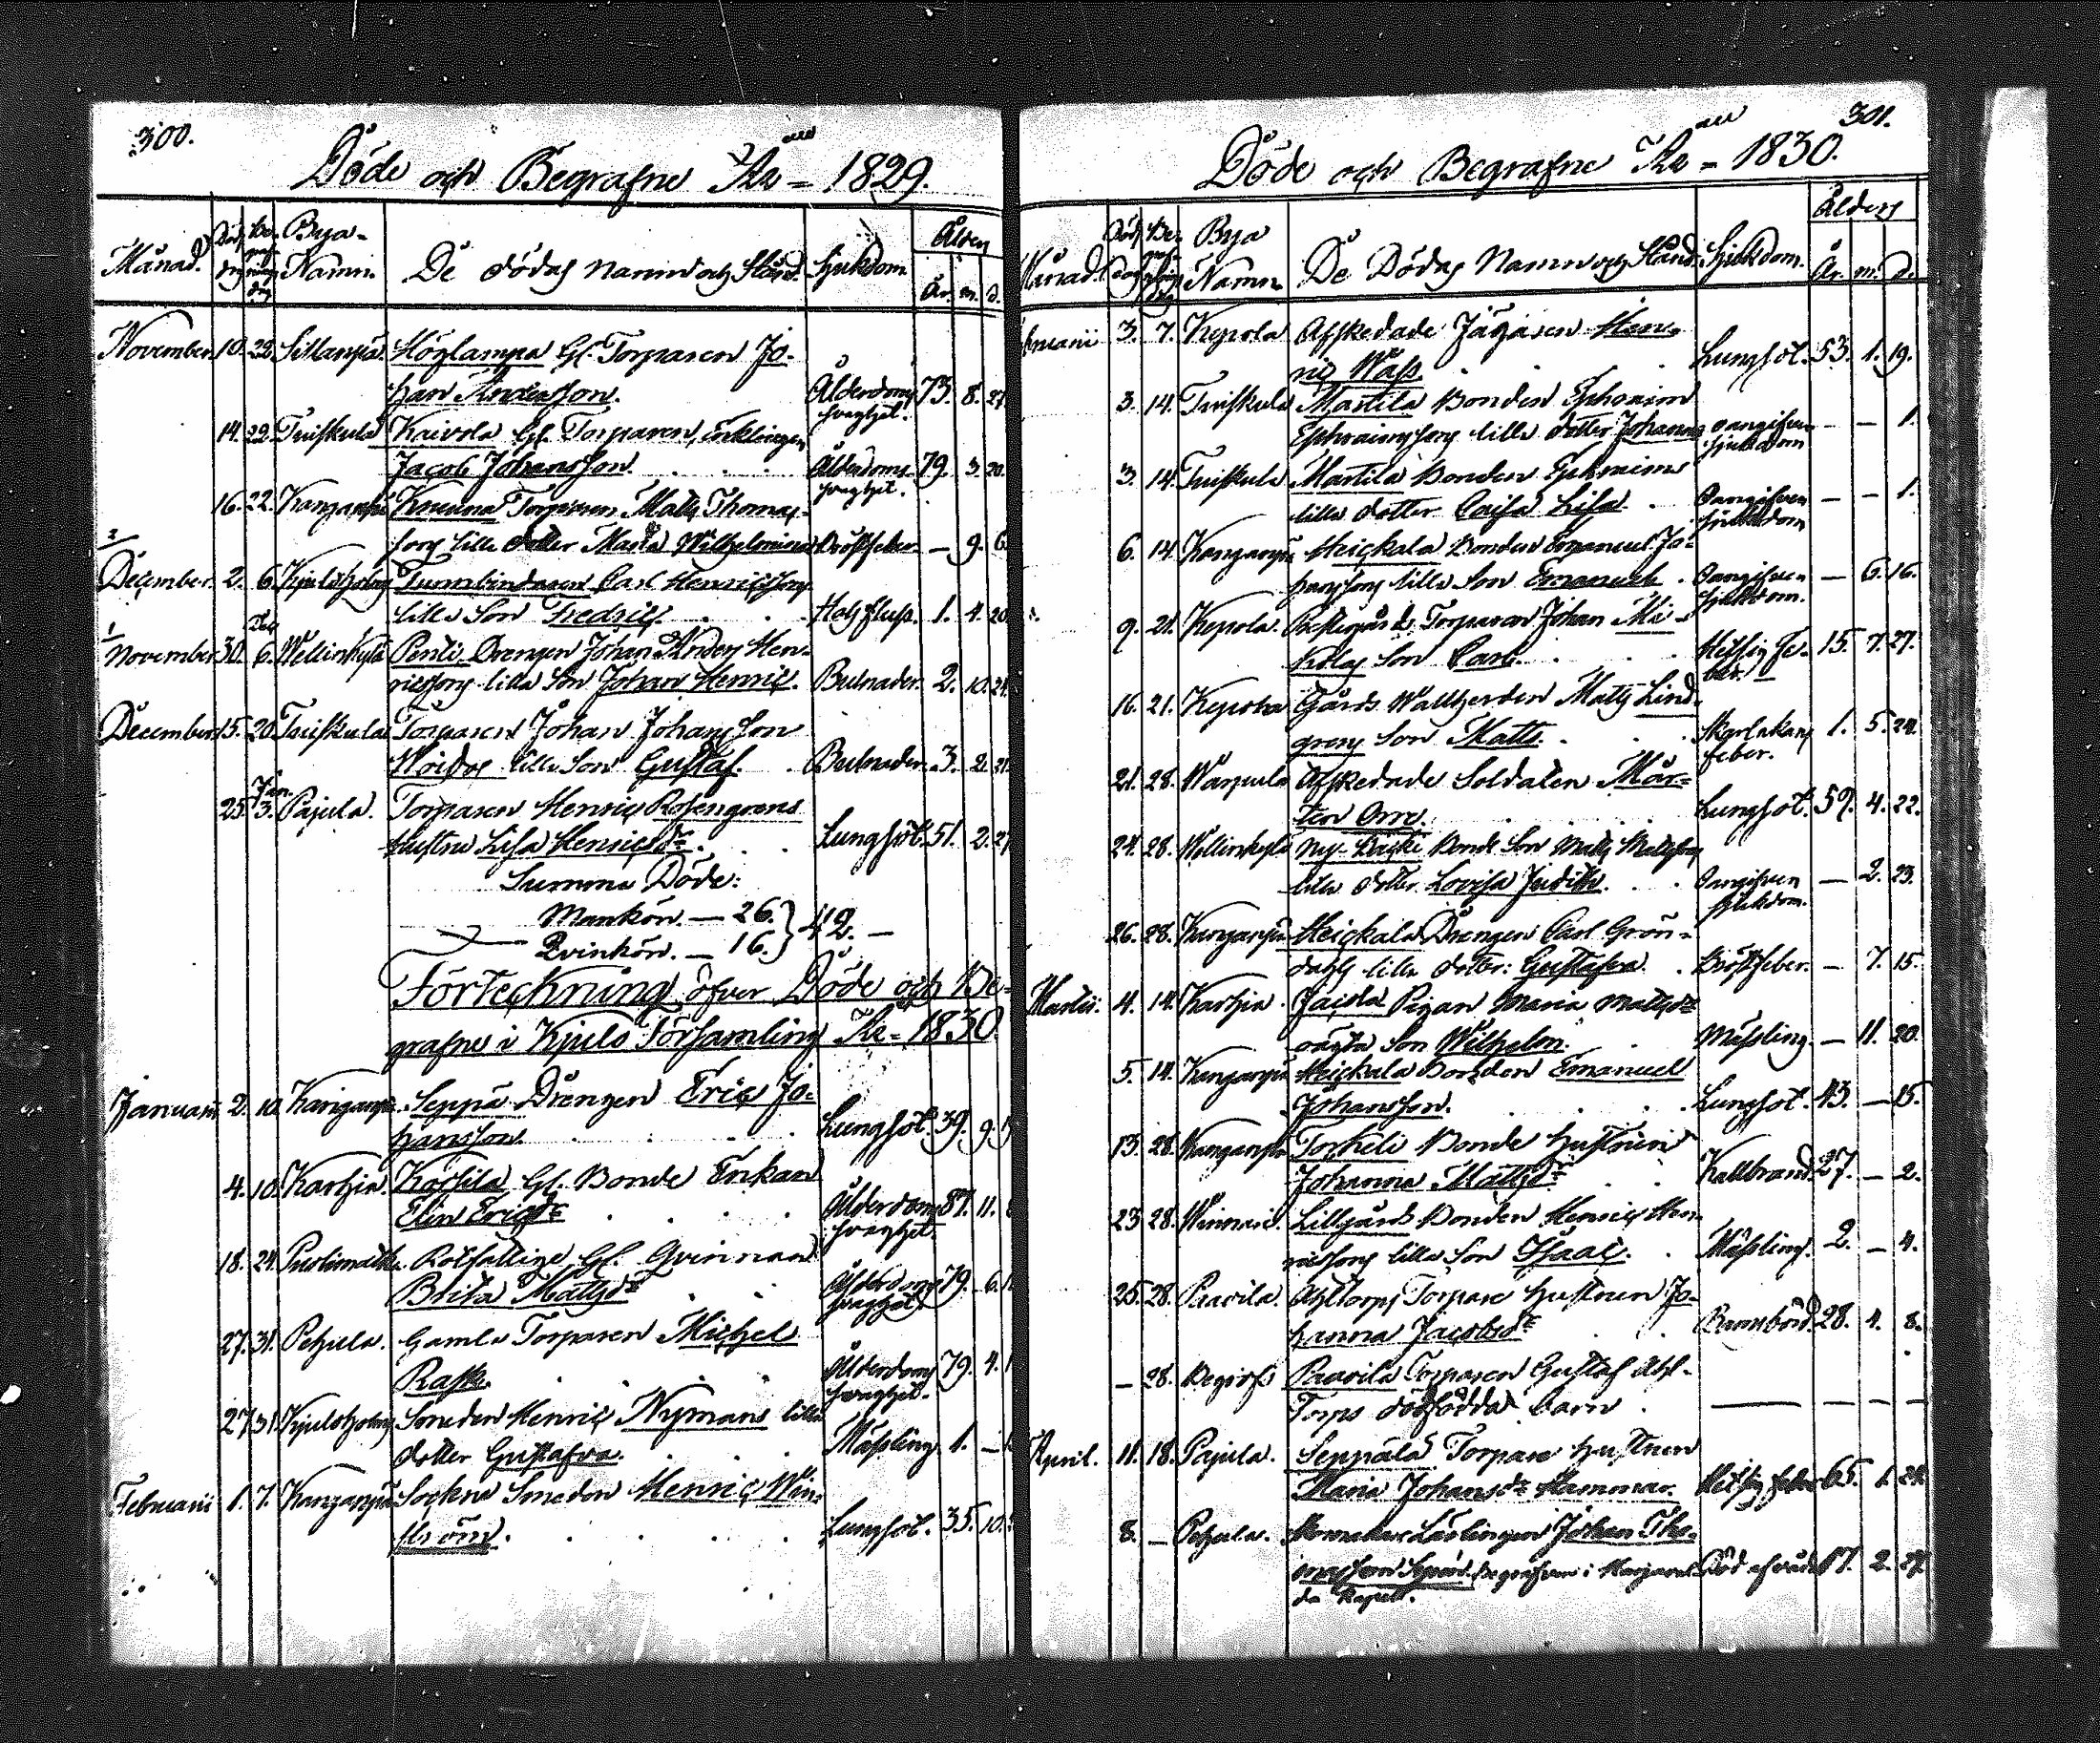 300.
Döde och Begrafne År 1829.
Månad. Död dag Begrafnings dag Bya-Namn. De dödas namn och Stånd. Sjukdom Ålder År. m. d.
November. 10. 22. Sillanpää. Höglampa Gl. Torparen Jo-
han Andersson. Ålderdoms svaghet. 73. 8. 27.
14. 22. Tuiskula Kaivola Gl. Torparen, Enklingen
Jacob Johansson. Ålderdoms svaghet. 79. 3. 20.
16. 22. Kanganpää Torparen Matts Thomas-
sons lilla dotter Maria Wilhelmina Bröstfeber — 9. 6.
2
December. 2. 6. Kjuloholm Tunnbindaren Carl Henricssons
lilla Son Fredric. Halsfluss. 1. 4. 20.
1
November 30. Dec. 6. Wellinkylä Pentti Drengen Johan Anders Hen-
ricssons lilla Son Johan Henric. Bulnader. 2. 10. 24.
December 15. 20. Tuiskula Torparen Johan Johansson
Woidos lilla Son Gustaf. Bulnader. 3. 2. 21.
25. Jan. 3. Pajula. Torparen Henric Rosengrens
Hustru Lisa Henricsdr. Lungsot. 51. 2. 27.
Summa Döde:
Mankön. — 26. } 42. —
Qvinkön. — 16.
Förteckning öfver Döde och Be-
grafne i Kjulo Församling År 1830.
Januarii 2. 10. Kanganpää Seppä Drengen Eric Jo-
hansson. Lungsot. 39. 9.
4. 10. Karhia. Kartila Gl. Bonde Enkan
Elin Ericsdr Ålderdoms svaghet. 87. 11.
18. 24. Puolimatka Rotfattige Gl. Qvinnan
Brita Mattsdr Ålderdoms svaghet. 79. 6.
27. 31. Pehula. Gamla Torparen Michel
Rask. Ålderdoms svaghet. 79. 4.
27. 31. Kjuloholm Smeden Henric Nymans lilla
dotter Gustafva. Mässling. 1. —
Februarii 1. 7. Kanganpää Sockne Smeden Henric Win-
ström. Lungsot. 35. 10.
301.
Döde och Begrafne År 1830.
Månad. Död dag Begrafnings dag Bya Namn De Dödas Namn och Stånd. Sjukdom. Ålder År. m. d.
Februarii 3. 7. Kepola Afskedade Jägaren Hen-
ric Wass. Lungsot. 53. 1. 19.
3. 14. Tuiskula Marttila Bonden Ephraim
Ephraimssons lilla dotter Johanna oangifven sjukdom — — 1.
3. 14. Tuiskula Marttila Bonden Ephraims
lilla dotter Caisa Lisa. Oangifven sjukdom — — 1.
6. 14. Kanganpää Heickala Bonden Emanuel Jo-
hanssons lilla Son Emanuel. Oangifven sjukdom. — 6. 16.
9. 21. Kepola. Torparen Johan Mi-
kolas Son Carl. Hetsig Feber. 15. 7. 27.
16. 21. Kepola Gårds Wallherden Matts Lind-
grens Son Matts. Skarlakans feber. 1. 5. 24.
21. 28. Wanpula Afskedade Soldaten Mår-
ten Orre. Lungsot. 59. 4. 22.
24. 28. Wellinkylä Bonde Son Matts Mattssons
lilla dotter Lovisa Judith. Oangifven sjukdom. — 2. 23.
26. 28. Kanganpää Heickala Drengen Carl Grön-
dahls lilla dotter: Gustafva. Bröstfeber. — 7. 15.
Martii. 4. 14. Karhia. Jaicola Pigan Maria Mattsdr
oägta Son Wilhelm. Mässling. — 11. 20.
5. 14. Kanganpää Heickala Bonden Emanuel
Johansson. Lungsot. 43. — 15.
13. 28. Kanganpää Torkeli Bonde Hustrun
Johanna Mattsdr Kallbrand. 27. — 2.
23 28. Winnari. Lillgårds Bonden Henric Hen-
ricssons lilla Son Isaac. Mässling. 2. — 4.
25. 28. Paavila. Ahltorps Torpare Hustrun Jo-
hanna Jacobsdr Barnsbörd. 28. 4. 8.
— 28. Begrofs Paavila Torparen Gustaf Ahl-
Torps dödfödda barn. — — — —
April. 11. 18. Pajula. Seppälä Torpare Hustrun
Maria Johansdr Hammar. Hetsig feber 65. 1. 24.
8. — Pehula. Lärlingen Johan Tho-
masson begrafven i Harjaval-
da Kapell. Död af våda 17. 2. 27.